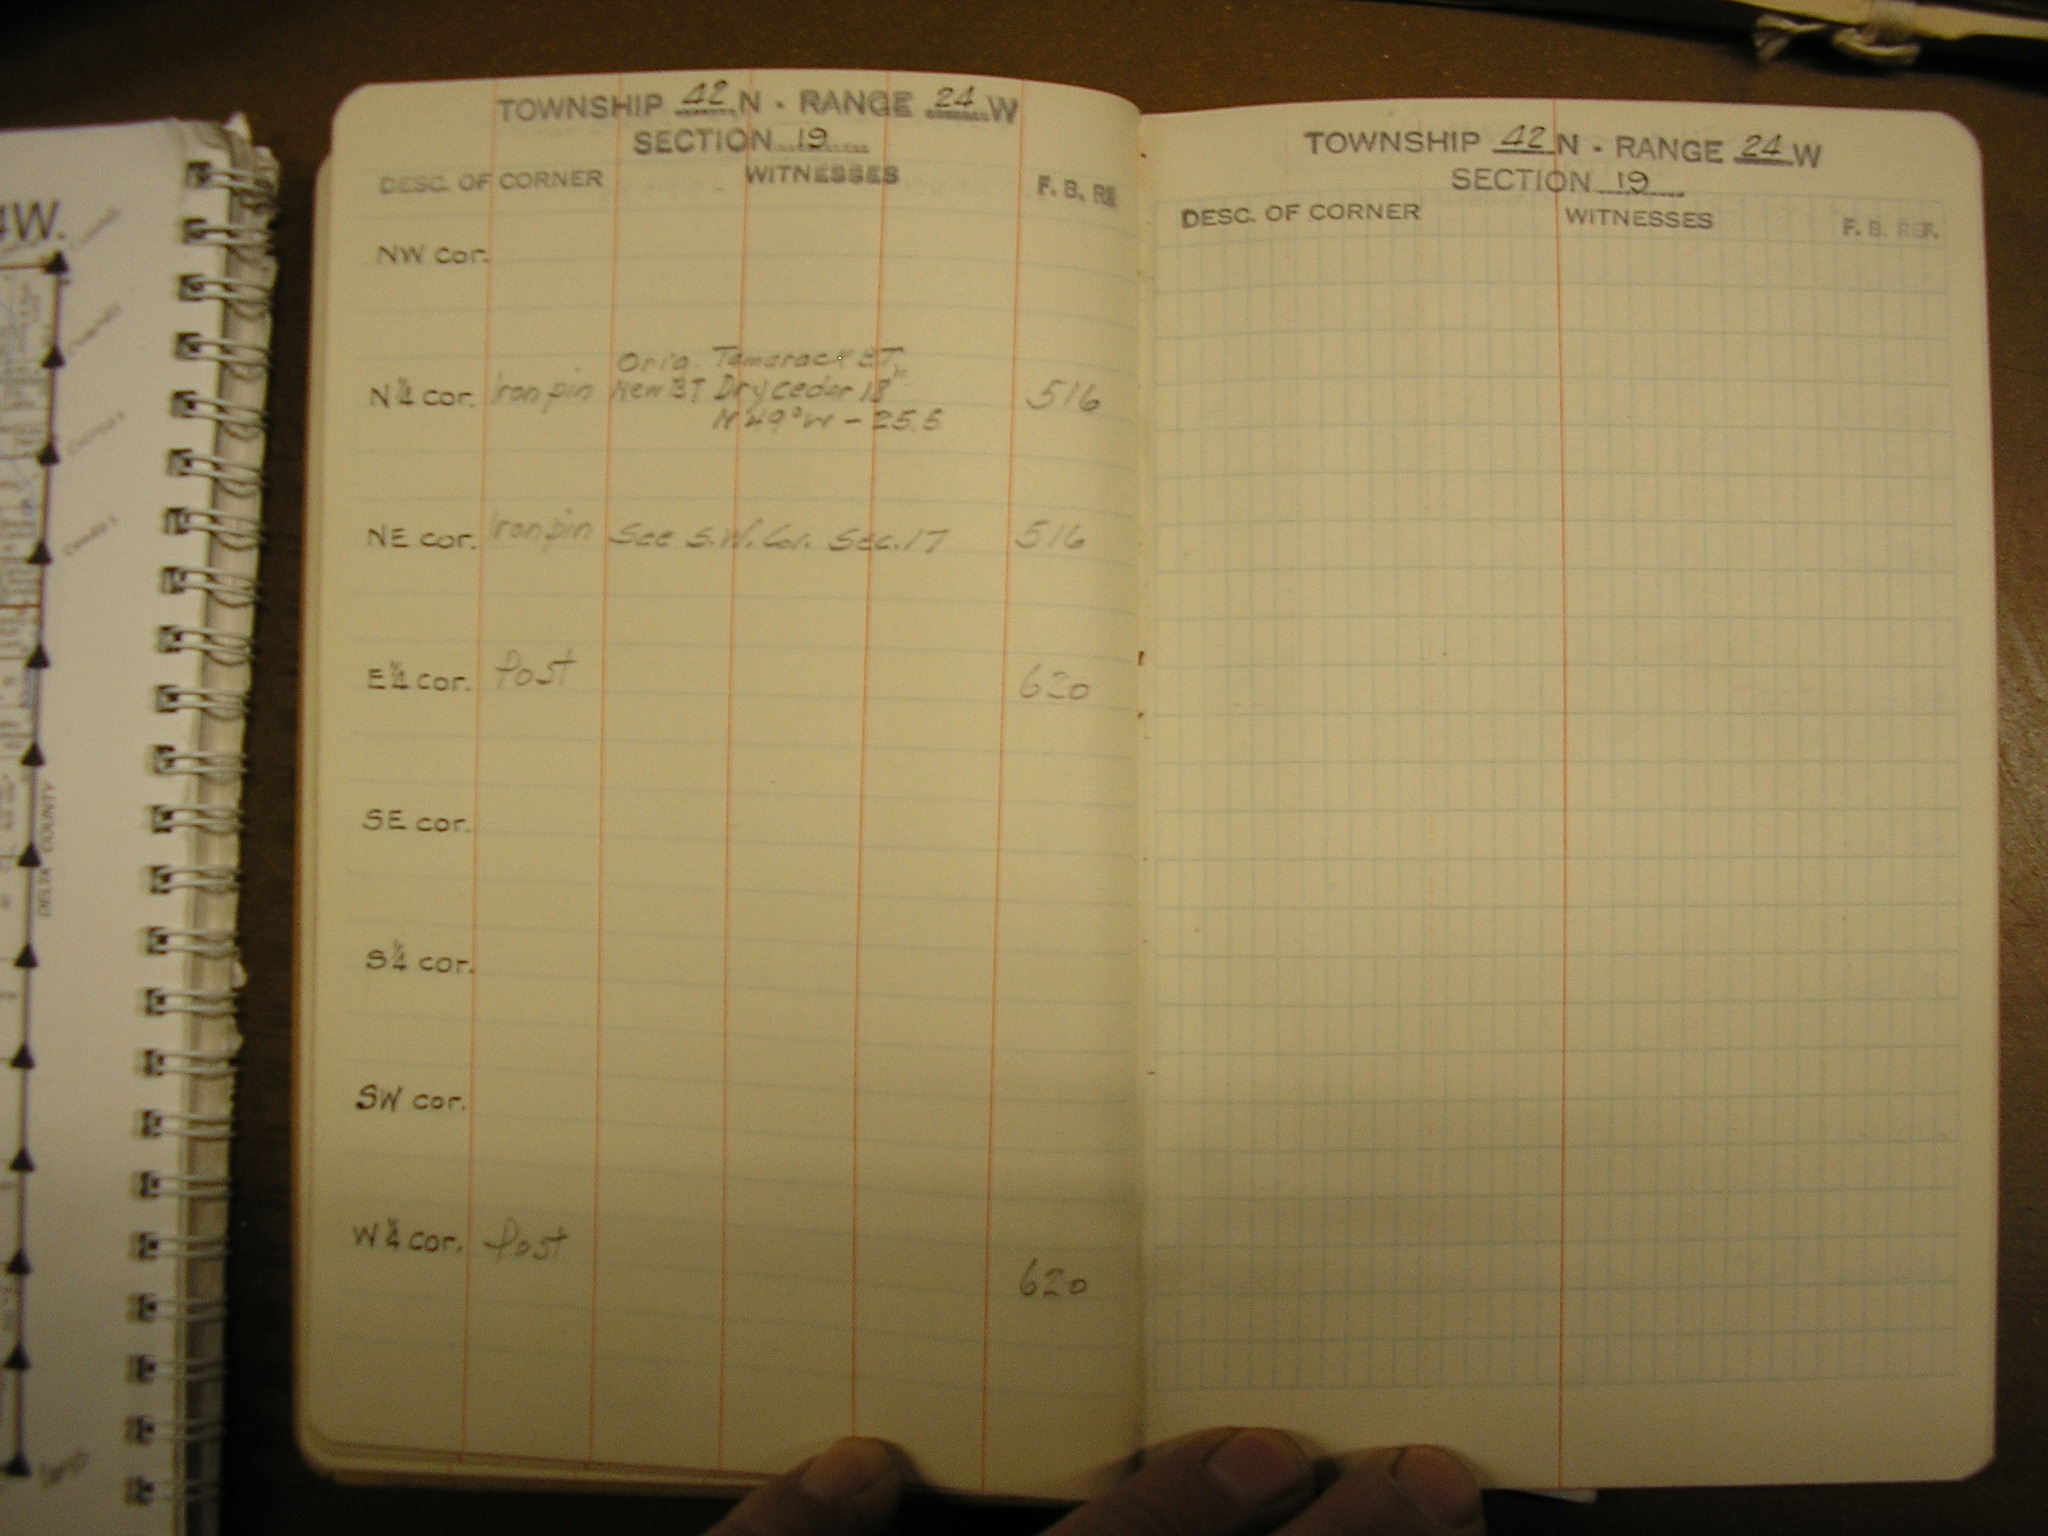 4W.
DELTA COUNTY
TOWNSHIP 42 N . RANGE 24 W
SECTION 19
DESC. OF CORNER WITNESSES F. B. RE
NW cor.
Orig. Tamarack BT,
N 1/4 cor. Iron pin New BT Dry cedar 18" 516
N 49° W - 25.5
NE cor. Iron pin See S.W. Cor. Sec. 17 516
E 1/4 cor. Post 620
SE cor.
S 1/4 cor.
SW cor.
W 1/4 cor. Post
620
TOWNSHIP 42 N . RANGE 24 W
SECTION 19
DESC. OF CORNER WITNESSES F. B. REF.